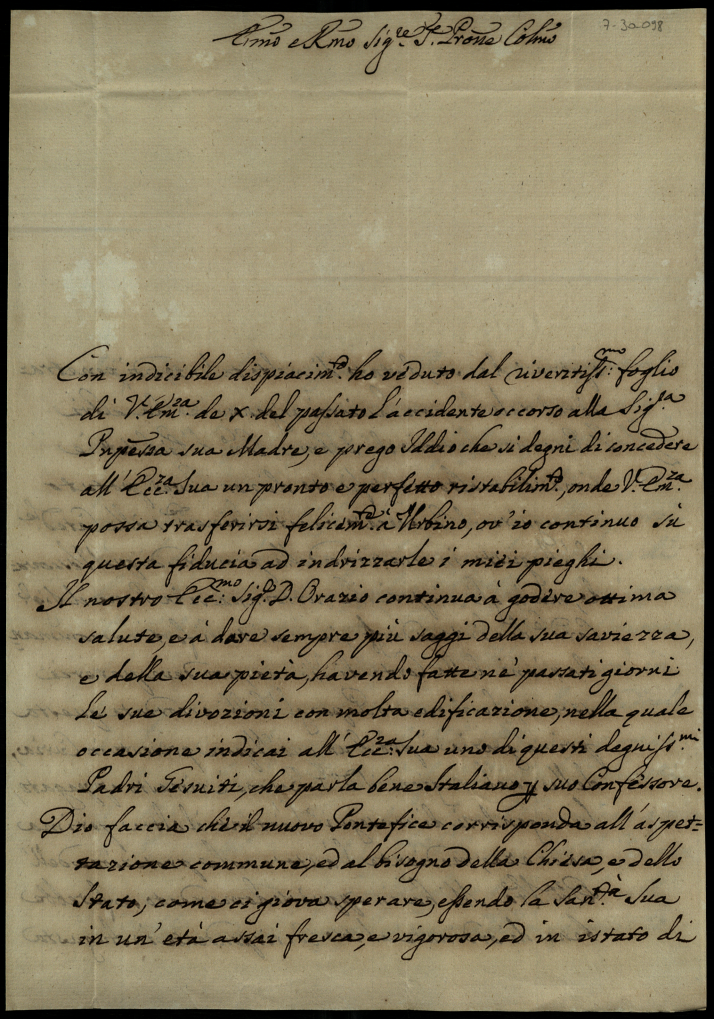 7-30-098
Emo e Rmo Sigre. P. Prone Colmo
Con indicibile dispiacimto. ho veduto dal riveritissmo: foglio
di V. Emza. de X. del passato l'accidente occorso alla Siga.
Pnpessa sua Madre, e prego Iddio che si degni di concedere
all' Ecca. Sua un pronto e perfetto ristabilimto., onde V. Emza.
possa trasferirsi felicemte. à Urbino, ov' io continuo sù
questa fiducia ad indrizzarle i miei pieghi.
Il nostro Eccmo: Sigr. D. Orazio continua à godere ottima
salute, e à dare sempre più saggi della sua saviezza,
e della sua pietà, havendo fatte ne' passati giorni
le sue divozioni con molta edificazione, nella quale
occasione indicai all' Ecca: Sua uno di questi degnissmi
Padri Gesuiti, che parla bene Italiano p suo Confessore.
Dio faccia che il nuovo Pontefice corrisponda all' aspet=
tazione commune, ed al bisogno della Chiesa, e dello
Stato, come ci giova sperare, essendo la Santà Sua
in un' età assai fresca, e vigorosa, ed in istato di